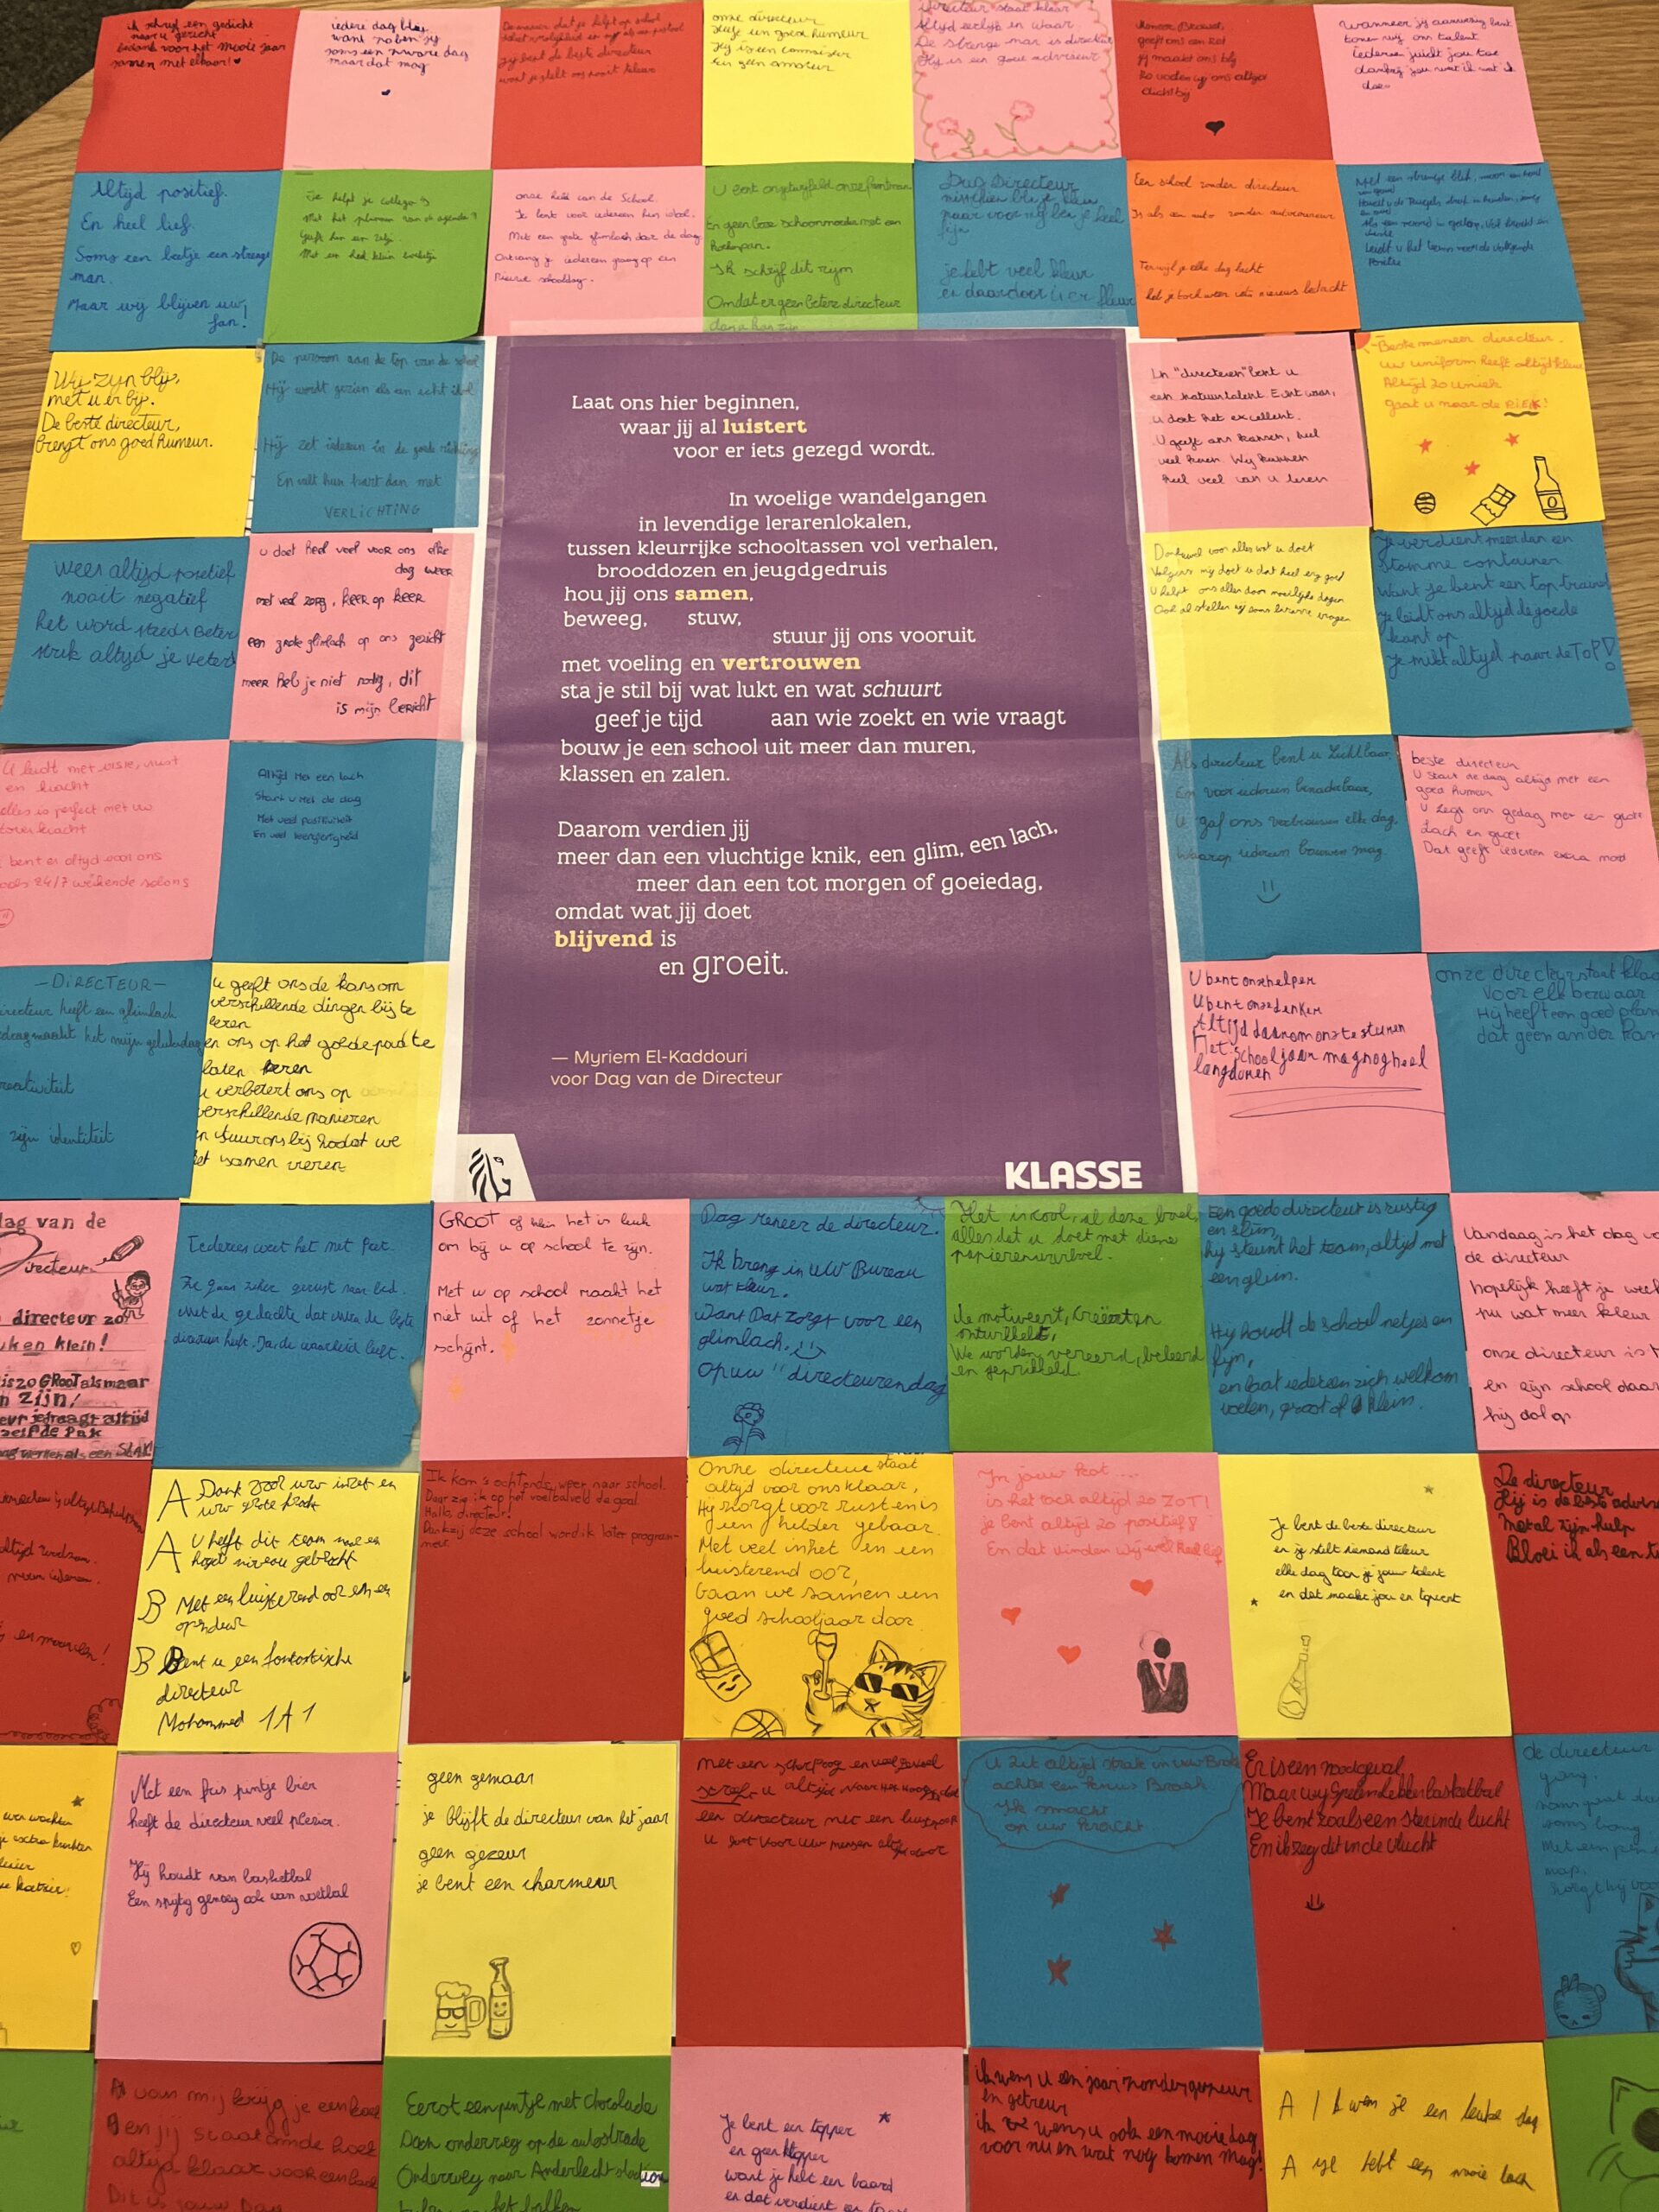 ik schrijf een gedicht
naar u gericht
bedankt voor het mooie jaar
samen met elkaar!
iedere dag blij
want
soms een zware dag
maar dat mag
jij bent de beste directeur
onze directeur
goed humeur
Hij is een
En geen amateur
Altijd eerlijk en waar
De strenge man is directeur
Hij is een adviseur
geeft ons een
jij maakt ons blij
wij ons altijd
dichtbij
Wanneer jij aanwezig bent
tonen wij ons talent
iedereen juicht jou toe
dankzij jou weet ik wat ik
doe
Altijd positief.
En heel lief.
Soms een beetje een strenge
man.
Maar wij blijven uw
fan!
Je helpt je collega's
Met het plannen van de agenda's
Geeft hen een zetje
Met een heel klein
onze held van de School.
Je bent voor iedereen hun idool.
Met een grote glimlach door de dag
Ontvang je iedereen graag op een
nieuwe schooldag.
U bent ongetwijfeld onze frontman
En geen boze schoonmoeder met een
kookpan.
Ik schrijf dit rijm
Omdat er geen betere directeur
dan u kan zijn
Dag Directeur
misschien ben je klein
maar voor mij ben je heel
fijn
je hebt veel kleur
en daardoor is er fleur
Een school zonder directeur
Is als een auto zonder autocoureur
Terwijl je elke dag lacht
heb je toch weer iets nieuws bedacht
Met een strenge blik,
Leidt u het team naar de volgende
positie
Wij zijn blij,
met u er bij.
De beste directeur,
brengt ons goed humeur.
De persoon aan de top van de school
Hij wordt gezien als een echt idol
Hij zet iedereen in de goede richting
En vult hun hart dan met
VERLICHTING
Laat ons hier beginnen,
waar jij al luistert
voor er iets gezegd wordt.
In woelige wandelgangen
in levendige lerarenlokalen,
tussen kleurrijke schooltassen vol verhalen,
brooddozen en jeugdgedruis
hou jij ons samen,
beweeg, stuw,
stuur jij ons vooruit
met voeling en vertrouwen
sta je stil bij wat lukt en wat schuurt
geef je tijd aan wie zoekt en wie vraagt
bouw je een school uit meer dan muren,
klassen en zalen.
Daarom verdien jij
meer dan een vluchtige knik, een glim, een lach,
meer dan een tot morgen of goeiedag,
omdat wat jij doet
blijvend is
en groeit.
— Myriem El-Kaddouri
voor Dag van de Directeur
KLASSE
In "directeren" bent u
een natuurtalent. Echt waar,
u doet het excellent.
U geeft ons kansen, heel
veel keren. Wij kunnen
heel veel van u leren
Beste meneer directeur.
uw uniform heeft altijd kleur
Altijd zo uniek
gaat u naar de PIEK!
wees altijd positief
nooit negatief
het word steeds beter
strik altijd je veters
u doet heel veel voor ons elke
dag weer
met veel zorg, keer op keer
een grote glimlach op ons gezicht
meer heb je niet nodig, dit
is mijn bericht
Dankuwel voor alles wat u doet
Volgens mij doet u dat heel erg goed
U helpt ons alles door moeilijke dagen
Ook al stellen wij soms vragen
Je verdient meer dan een
stomme container
Want je bent een top trainer
Je leidt ons altijd de goede
kant op
Je mikt altijd naar de ToP!
U leidt met visie, rust
en kracht
alles is perfect met uw
toverkracht
bent er altijd voor ons
zoals 24/7 werkende salons
Altijd met een lach
Start u met de dag
Met veel positiviteit
En veel leergierigheid
Als directeur bent u
En voor iedereen benaderbaar,
U gaf ons vertrouwen elke dag.
Waarop iedereen bouwen mag.
beste directeur
U start de dag altijd met een
goed humeur
U zegt ons gedag met een grote
Lach en groet
Dat geeft iedereen extra moed
—DIRECTEUR—
directeur heeft een glimlach
maakt het mijn geluksdag
creativiteit
zijn identiteit
u geeft ons de kans om
verschillende dingen bij te
leren
en ons op het goede pad te
laten keren
u verbetert ons op
verschillende manieren
en stuur ons bij zodat we
het samen vieren
U bent onze helper
U bent onze denker
Altijd daar om ons te steunen
Het schooljaar mag nog heel
lang duren
onze directeur staat klaar
voor elk bezwaar
Hij heeft een goed plan
dat geen ander kan
dag van de
Directeur
directeur zo
klein!
is zo GROOT als maar
ZIJN!
draagt altijd
zelfde Pak
Iedereen weet het met feet.
Ze gaan zeker gerust naar bed.
met de gedachte dat de beste
directeur heeft. Ja, de waarheid leeft.
GROOT of klein het is leuk
om bij u op school te zijn.
Met u op school maakt het
niet uit of het zonnetje
schijnt.
Dag meneer de directeur.
Ik breng in uw Bureau
wat kleur.
Want Dat zorgt voor een
glimlach.
Op uw "directeurendag
Het is cool, al deze boel,
alles dat u doet met deze
papierenwirboel.
Je motiveert, creëert en
ontwikkelt,
We worden vereerd, beleerd
en geprikkeld
Een goede directeur is rustig
en slim,
hij steunt het team, altijd met
een glim.
Hij houdt de school netjes en
fijn,
en laat iedereen zich welkom
voelen, groot of klein.
Vandaag is het dag van
de directeur
hopelijk heeft je week
nu wat meer kleur
onze directeur is
en zijn school daar
hij dol op
A Dank voor uw inzet en
uw grote kracht
A U heeft dit team naar een
hoger niveau gebracht
B Met een luisterend oor en een
open deur
B Bent u een fantastische
directeur
Mohammed 1A1
Ik kom 's ochtends weer naar school.
Daar zag ik op het voetbalveld de goal
Hallo, directeur!
Dankzij deze school word ik later program-
meur.
Onze directeur staat
altijd voor ons klaar,
Hij zorgt voor rust en is
een helder gebaar.
Met veel inzet en een
luisterend oor,
Gaan we samen een
goed schooljaar door
In jouw kot....
is het ook altijd zo ZOT!
je bent altijd zo positief!
En dat vinden wij wel heel lief
Je bent de beste directeur
en je stelt niemand teleur
elke dag toon je jouw talent
en dat maakt jou en
De directeur
Hij is de beste
Met al zijn hulp
Bloei ik als een
Met een fris puntje bier
heeft de directeur veel plezier.
Hij houdt van basketbal
En spijtig genoeg ook van voetbal
geen gemaar
je blijft de directeur van het jaar
geen gezeur
je bent een charmeur
Met een scherp oog en veel gevoel
u altijd naar het
een directeur met een
u gaat voor uw mensen altijd door
U zit altijd strak in uw Broek
achter een
Ik macht
op uw kracht
Er is een noodgeval
Maar wij spelen lekker basketbal
Je bent zoals een ster in de lucht
En ik zeg dit in de vlucht
de directeur
A van mij krijg je een koek
B en jij staat om de hoek
altijd klaar voor een
Dit is jouw Dag
Eerst een puntje met chocolade
Dan onderweg op de autostrade
Onderweg naar Anderlecht station
Je bent een topper
en geen klopper
want je hebt een baard
en dat verdient een
ik wens u een jaar zonder gezeur
en getreur
ik wens u ook een mooie dag
voor nu en wat nog komen mag!
A Ik wens je een leuke dag
A Je hebt een mooie lach